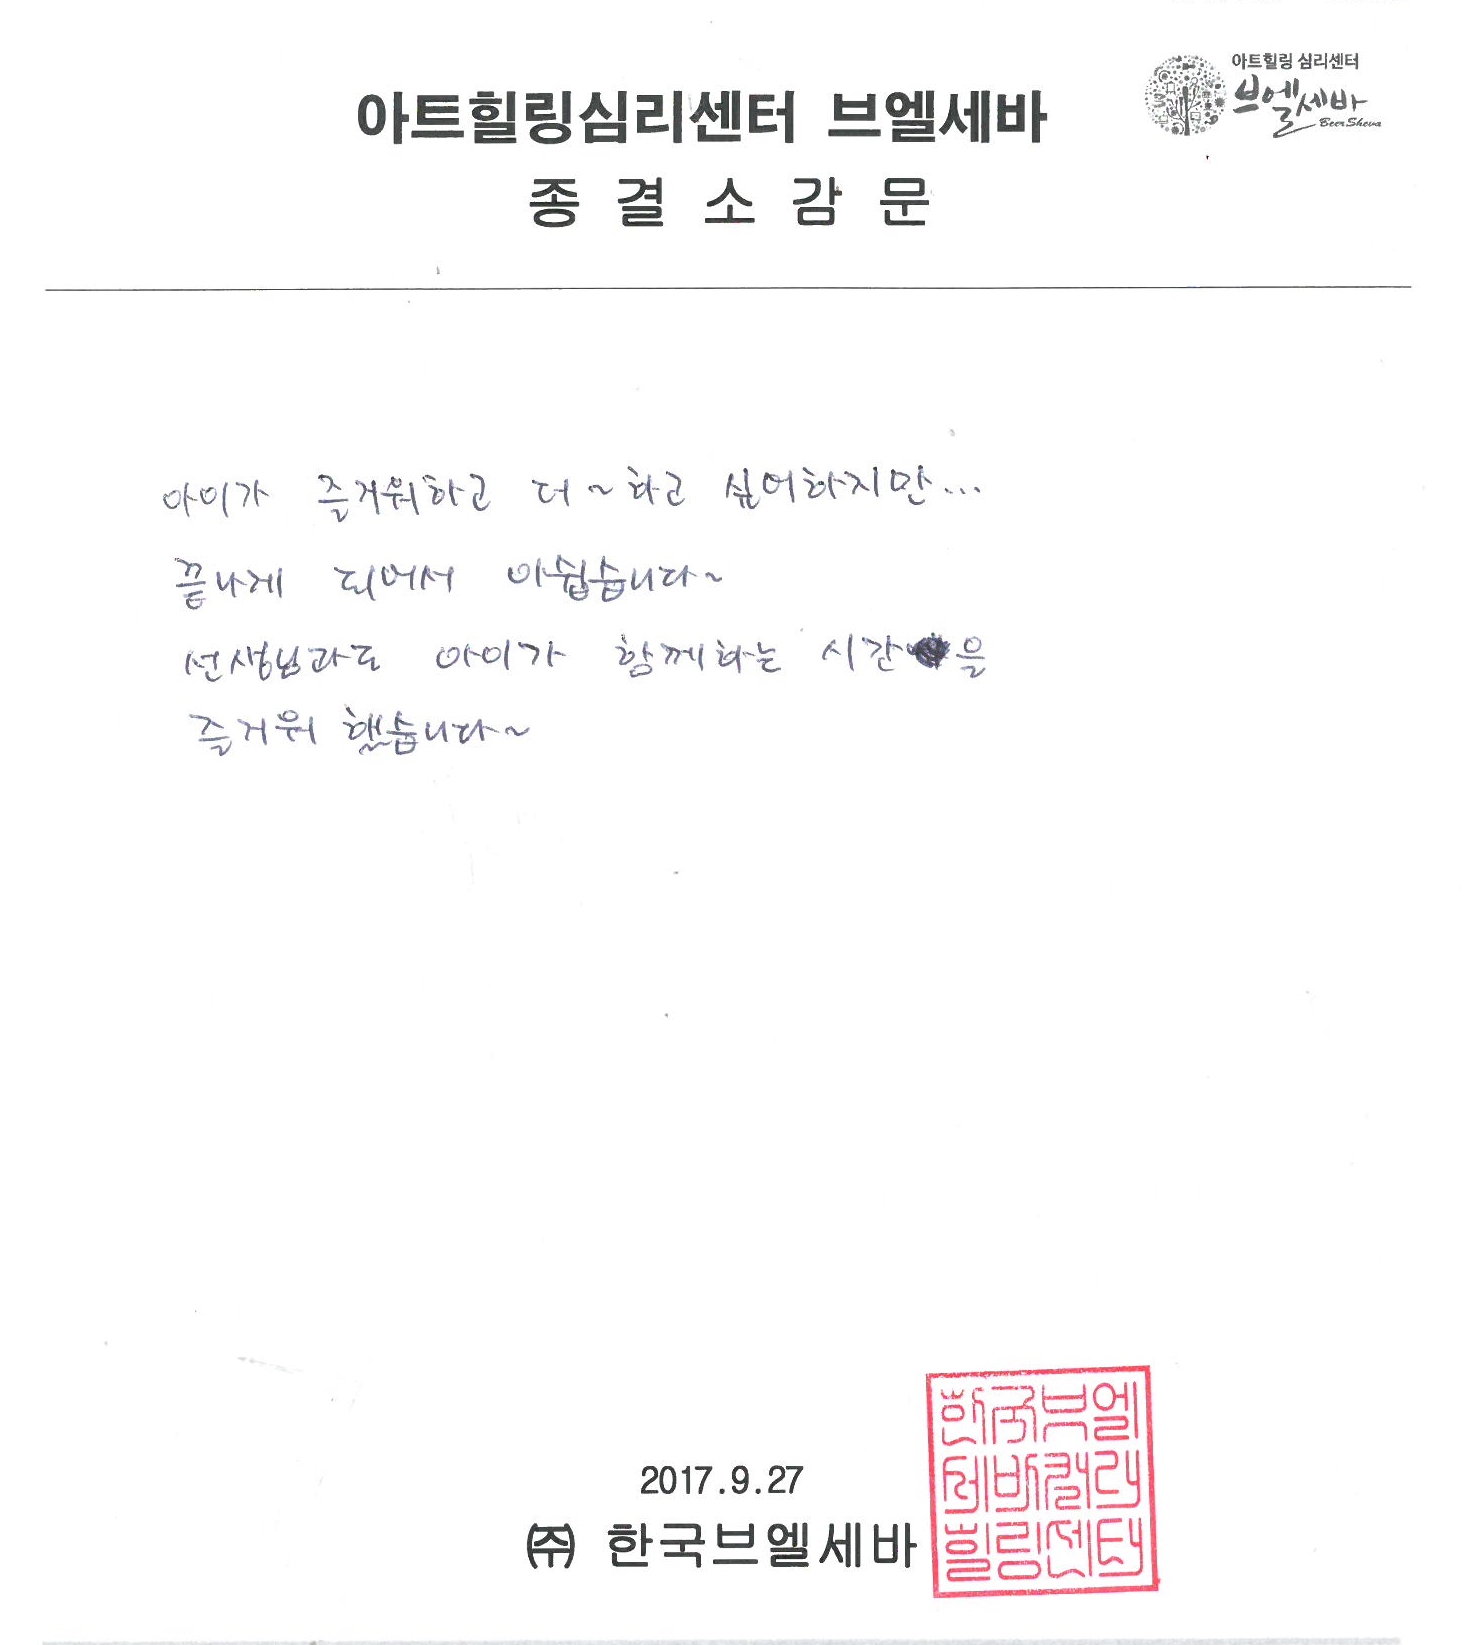 아트힐링 심리센터
브엘세바
BeerSheva
아트힐링심리센터 브엘세바
종결소감문
아이가 즐거워하고 더~하고 싶어하지만...
끝나게 되어서 아쉽습니다~
선생님과도 아이가 함께하는 시간을
즐거워 했습니다~
2017.9.27
㈜ 한국브엘세바
한국브엘
세바컬러
힐링센터